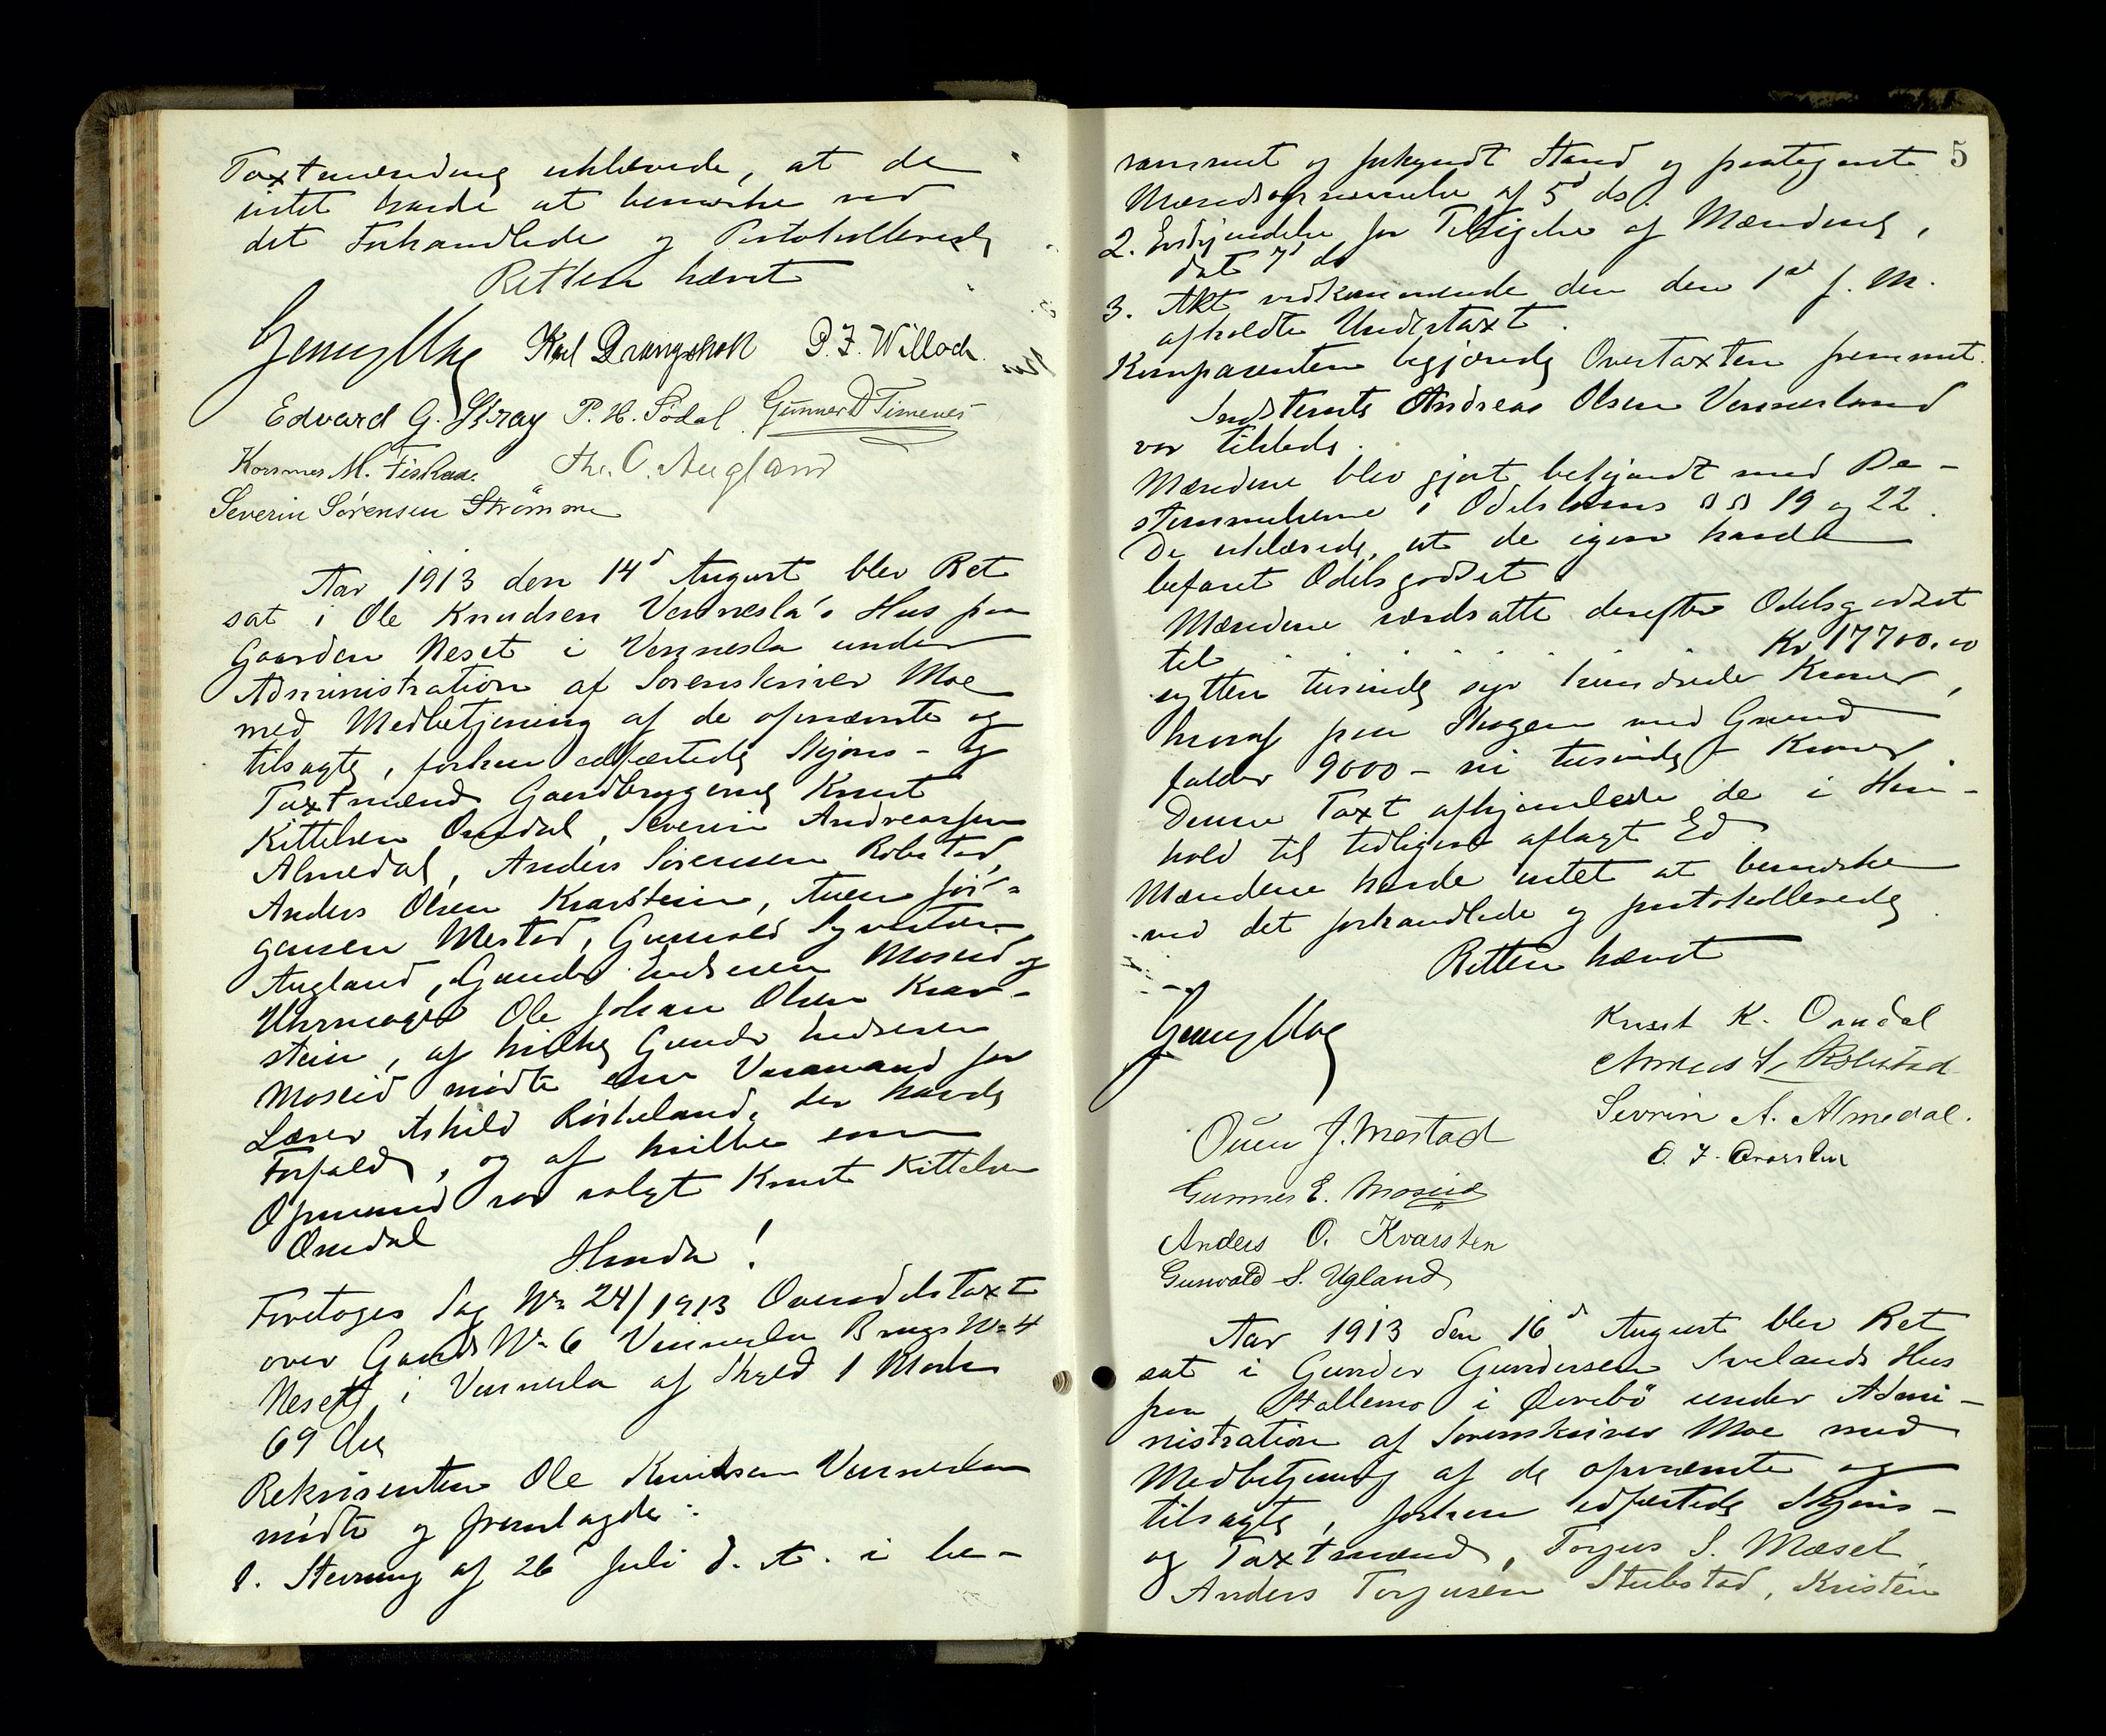 Taxtmændene erklærede, at de
intet havde at bemerke ved
det Forhandlede og Protokollerede
Retten hævet
Karl Drangsholt P. F. Willoch.
Edvard G. Stray P. H. Sødal Gunner D Timenes
M. Fiskaa. O. Augland
Severin Sörensen Strömme
Aar 1913 den 14d August blev Ret
sat i Ole Knudsen Vennesla's Hus paa
Gaarden Neset i Vennesla under
Administration af Sorenskriver Moe
med Medbetjening af de opnævnte og
tilsagte, forhen edfæstede Skjøns- og
Taxtmænd Gaardbrugerne Knut
Kittelsen Omdal, Severin Andreassen
Almedal, Anders Sørensen Robstad,
Anders Olsen Kvarstein, Auen Jør-
gensen Mestad, Gunvald Syvertsen
Augland, Gunder Endresen Moseid og
Uhrmager Ole Johan Olsen Kvar-
stein, af hvilke Gunder Endresen
Moseid mødte som Varamand for
Lærer Askild Røiseland, der havde
Forfald, og af hvilke som
Opmand var valgt Knut Kittelsen
Omdal
Hvorda!
Foretoges Sag No 24/1913 Overodelstaxt
over Gaards No 6 Vennesla Brugs No 4
Neset i Vennesla af Skyld 1 Mark
69 Øre
Rekvirenten Ole Knudsen Vennesla
mødte og fremlagde:
1. Stevning af 26 Juli d. A. i be-
5
rammet og forkyndt Stand og paategnet
Mændsopnævnelse af 5d ds.
2. for Tilsigelse af Mændene,
dat 7d ds
3. Akt vedkommende den den 1st f. M.
afholdte Undertaxt.
Komparenten begjærede Overtaxten fremmet.
Indstevnte Andreas Olsen Vennesland
var tilstede.
Mændene blev gjort bekjendt med Be-
stemmelserne i Odelslovens §§ 19 og 22.
De erklærede, at de igaar havde
befaret Odelsgodset
Mændene værdsatte derefter Odelsgodset
til Kr 17700.00
sytten tusinde syv hundrede Kroner,
hvoraf paa Skogen med Grund
falder 9000 - ni tusinde - Kroner
Denne Taxt afhjemlede de i Hen-
hold til tidligere aflagt Ed
Mændene havde intet at bemerke
ved det forhandlede og protokollerede.
Retten hævet
Knut K. Omdal
Anders S. Robstad
Sevrin A. Almedal.
Ouen J. Mestad
O. J.
Gunner E. Moseid
Anders O. Kvarsten
Gunvald S. Ugland
Aar 1913 den 16d August blev Ret
sat i Gunder Gundersen Ivelands Hus
paa Stallemo i Øvrebö under Admi-
nistration af Sorenskriver Moe med
Medbetjening af de opnævnte og
tilsagte, forhen edfæstede Skjøns-
og Taxtmænd, Torjus S. Mæsel,
Anders Torjusen Stubstad, Kristen